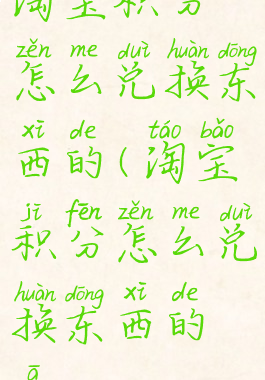 淘宝积分
zěn me duì huàn dōng
怎么兑换东
xī de táo bǎo
西的(淘宝
jī fēn zěn me duì
积分怎么兑
huàn dōng xī de
换东西的
ā